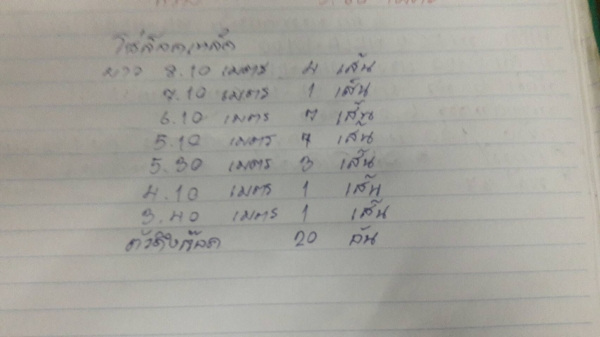 โซ่ล๊อคเหล็ก
ยาว 8.10 เมตร 4 เส้น
7.10 เมตร 1 เส้น
6.10 เมตร 7 เส้น
5.10 เมตร 7 เส้น
5.30 เมตร 3 เส้น
4.10 เมตร 1 เส้น
3.40 เมตร 1 เส้น
20 อัน